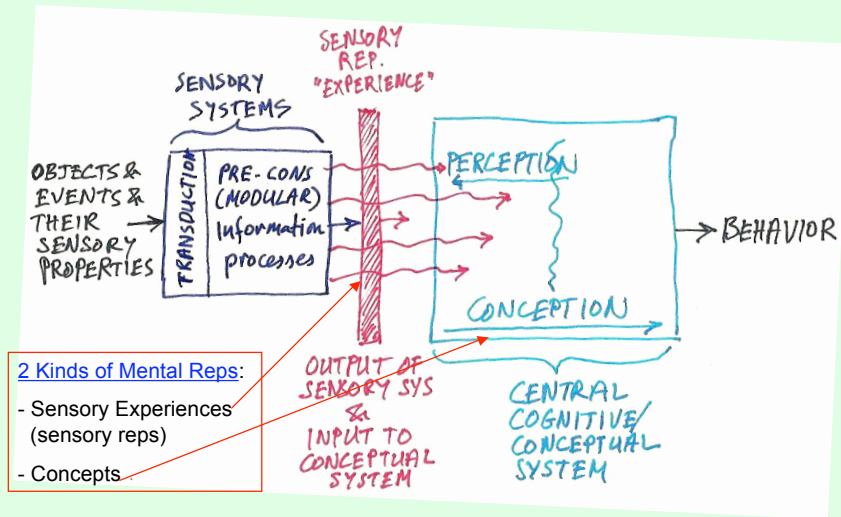 SENSORY
REP.
"EXPERIENCE"
SENSORY
SYSTEMS
OBJECTS &
EVENTS &
THEIR
SENSORY
PROPERTIES
TRANSDUCTION
PRE-CONS
(MODULAR)
Information
processes
PERCEPTION
CONCEPTION
BEHAVIOR
OUTPUT OF
SENSORY SYS
&
INPUT TO
CONCEPTUAL
SYSTEM
CENTRAL
COGNITIVE/
CONCEPTUAL
SYSTEM
2 Kinds of Mental Reps:
- Sensory Experiences
(sensory reps)
- Concepts